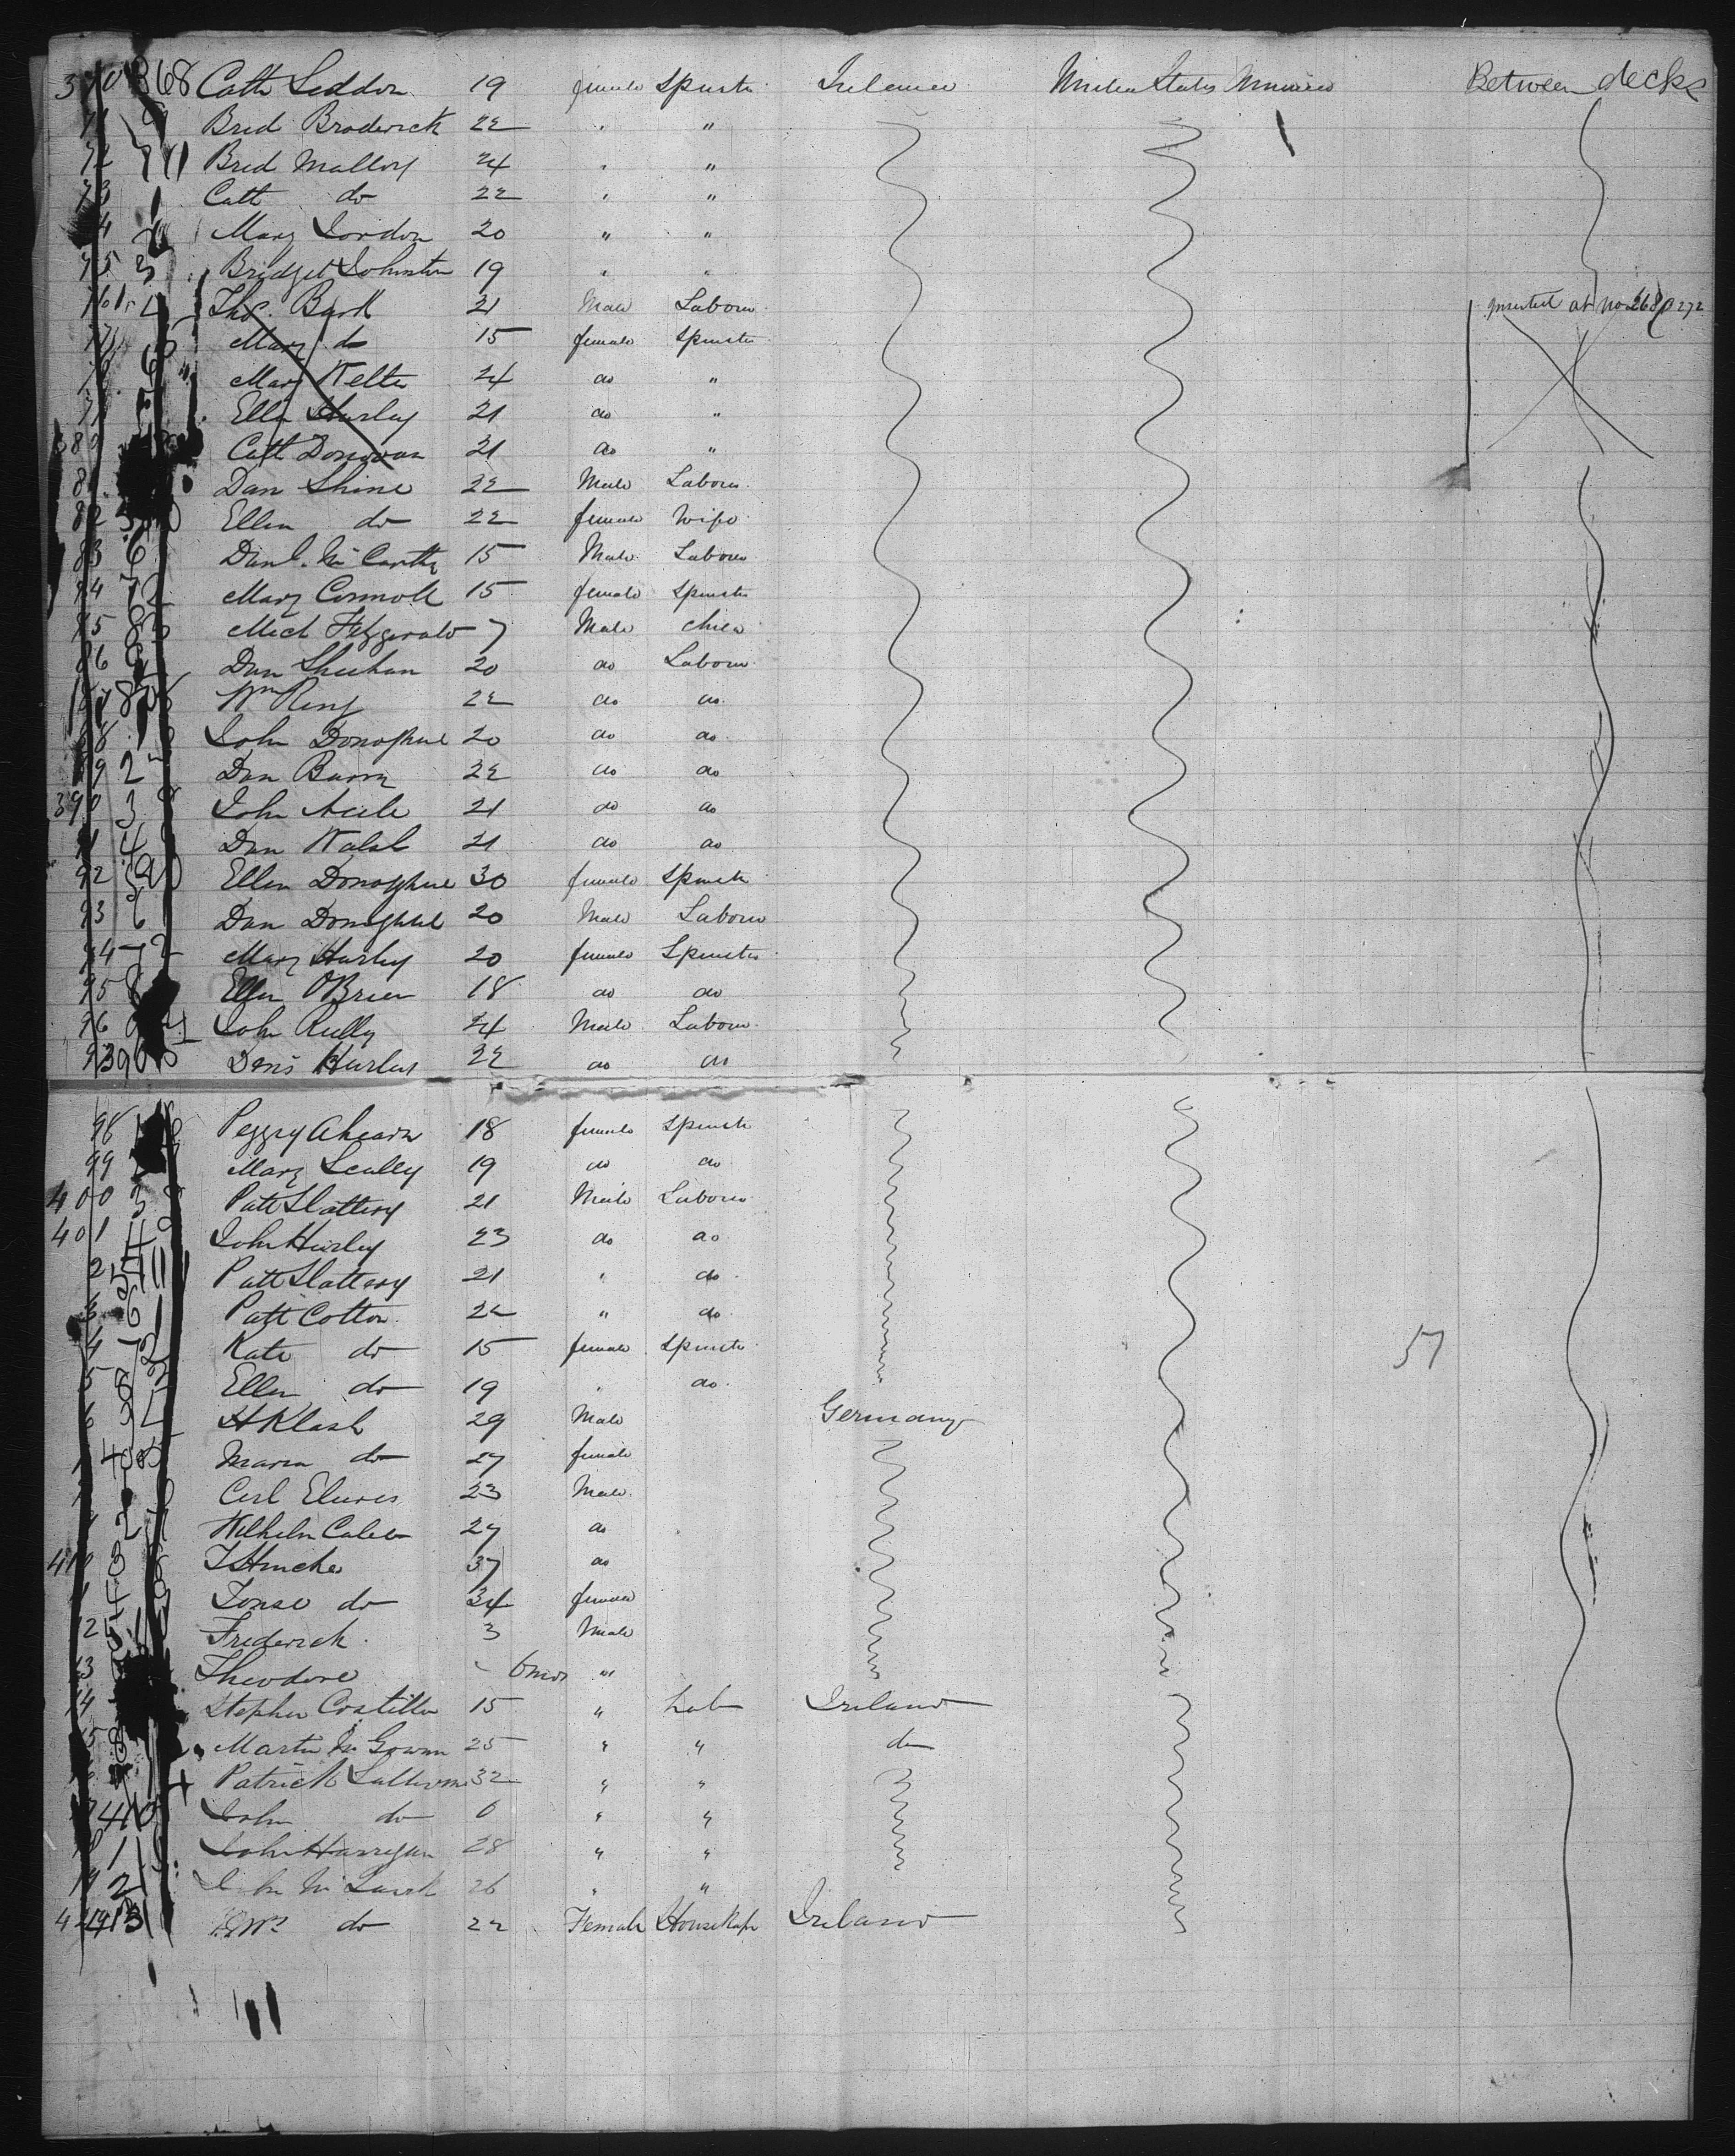 370 368 Cath Seddon 19 female Spinster Ireland United States America Between decks
71 Brid Broderick 22 " "
72 Brid Malloy 24 " "
73 Cath do 22 " "
74 Mary 20 " "
75 3 Bridget Johnston 19 " "
Thos. 21 Male Labourer inserted at no 268 @ 272
Mary do 15 female Spinster
Mary 24 do "
Ellen Hurley 21 do "
380 Cath Donovan 21 do "
81 Dan Shine 22 Male Labourer
82 Ellen do 22 female Wife
83 Danl. McCarthy 15 Male Labourer
84 Mary Connoll 15 female Spinster
85 Mich Fitzgerald 7 Male Child
86 Dan Sheehan 20 do Labourer
Wm Ring 22 do do
88 John Donoghue 20 do do
89 2 Dan Barry 22 do do
390 3 John 21 do do
91 4 Dan Walsh 21 do do
92 Ellen Donoghue 30 female Spinster
93 6 Dan Donoghue 20 Male Labourer
94 7 Mary Hurley 20 female Spinster
95 8 Ellen O'Brien 18 do do
96 John Reilly 24 Male Labourer
97 390 Denis Hurley 22 do do
98 Peggy Ahearn 18 female Spinster
99 Mary Scully 19 do do
400 3 Patt Slattery 21 Male Labourer
401 4 John Hurley 23 do do
2 5 Patt Slattery 21 " do
3 6 Patt Cotton 22 " do
4 7 Kate do 15 female Spinster 57
5 8 Ellen do 19 " do
6 H Klash 29 Male Germany
Maria do 27 female
Carl 23 Male
2 Wilhelm 27 do
410 3 37 do
1 4 do 34 female
12 5 Frederick 3 Male
13 Theodore 6 mos "
14 Stephen Costello 15 " Lab Ireland
15 Martin McGowan 25 " " do
Patrick Sullivan 32 " "
17 410 John do 6 " "
18 1 John Harrigan 28 " "
19 2 26 " "
do 22 Female Housekpr Ireland